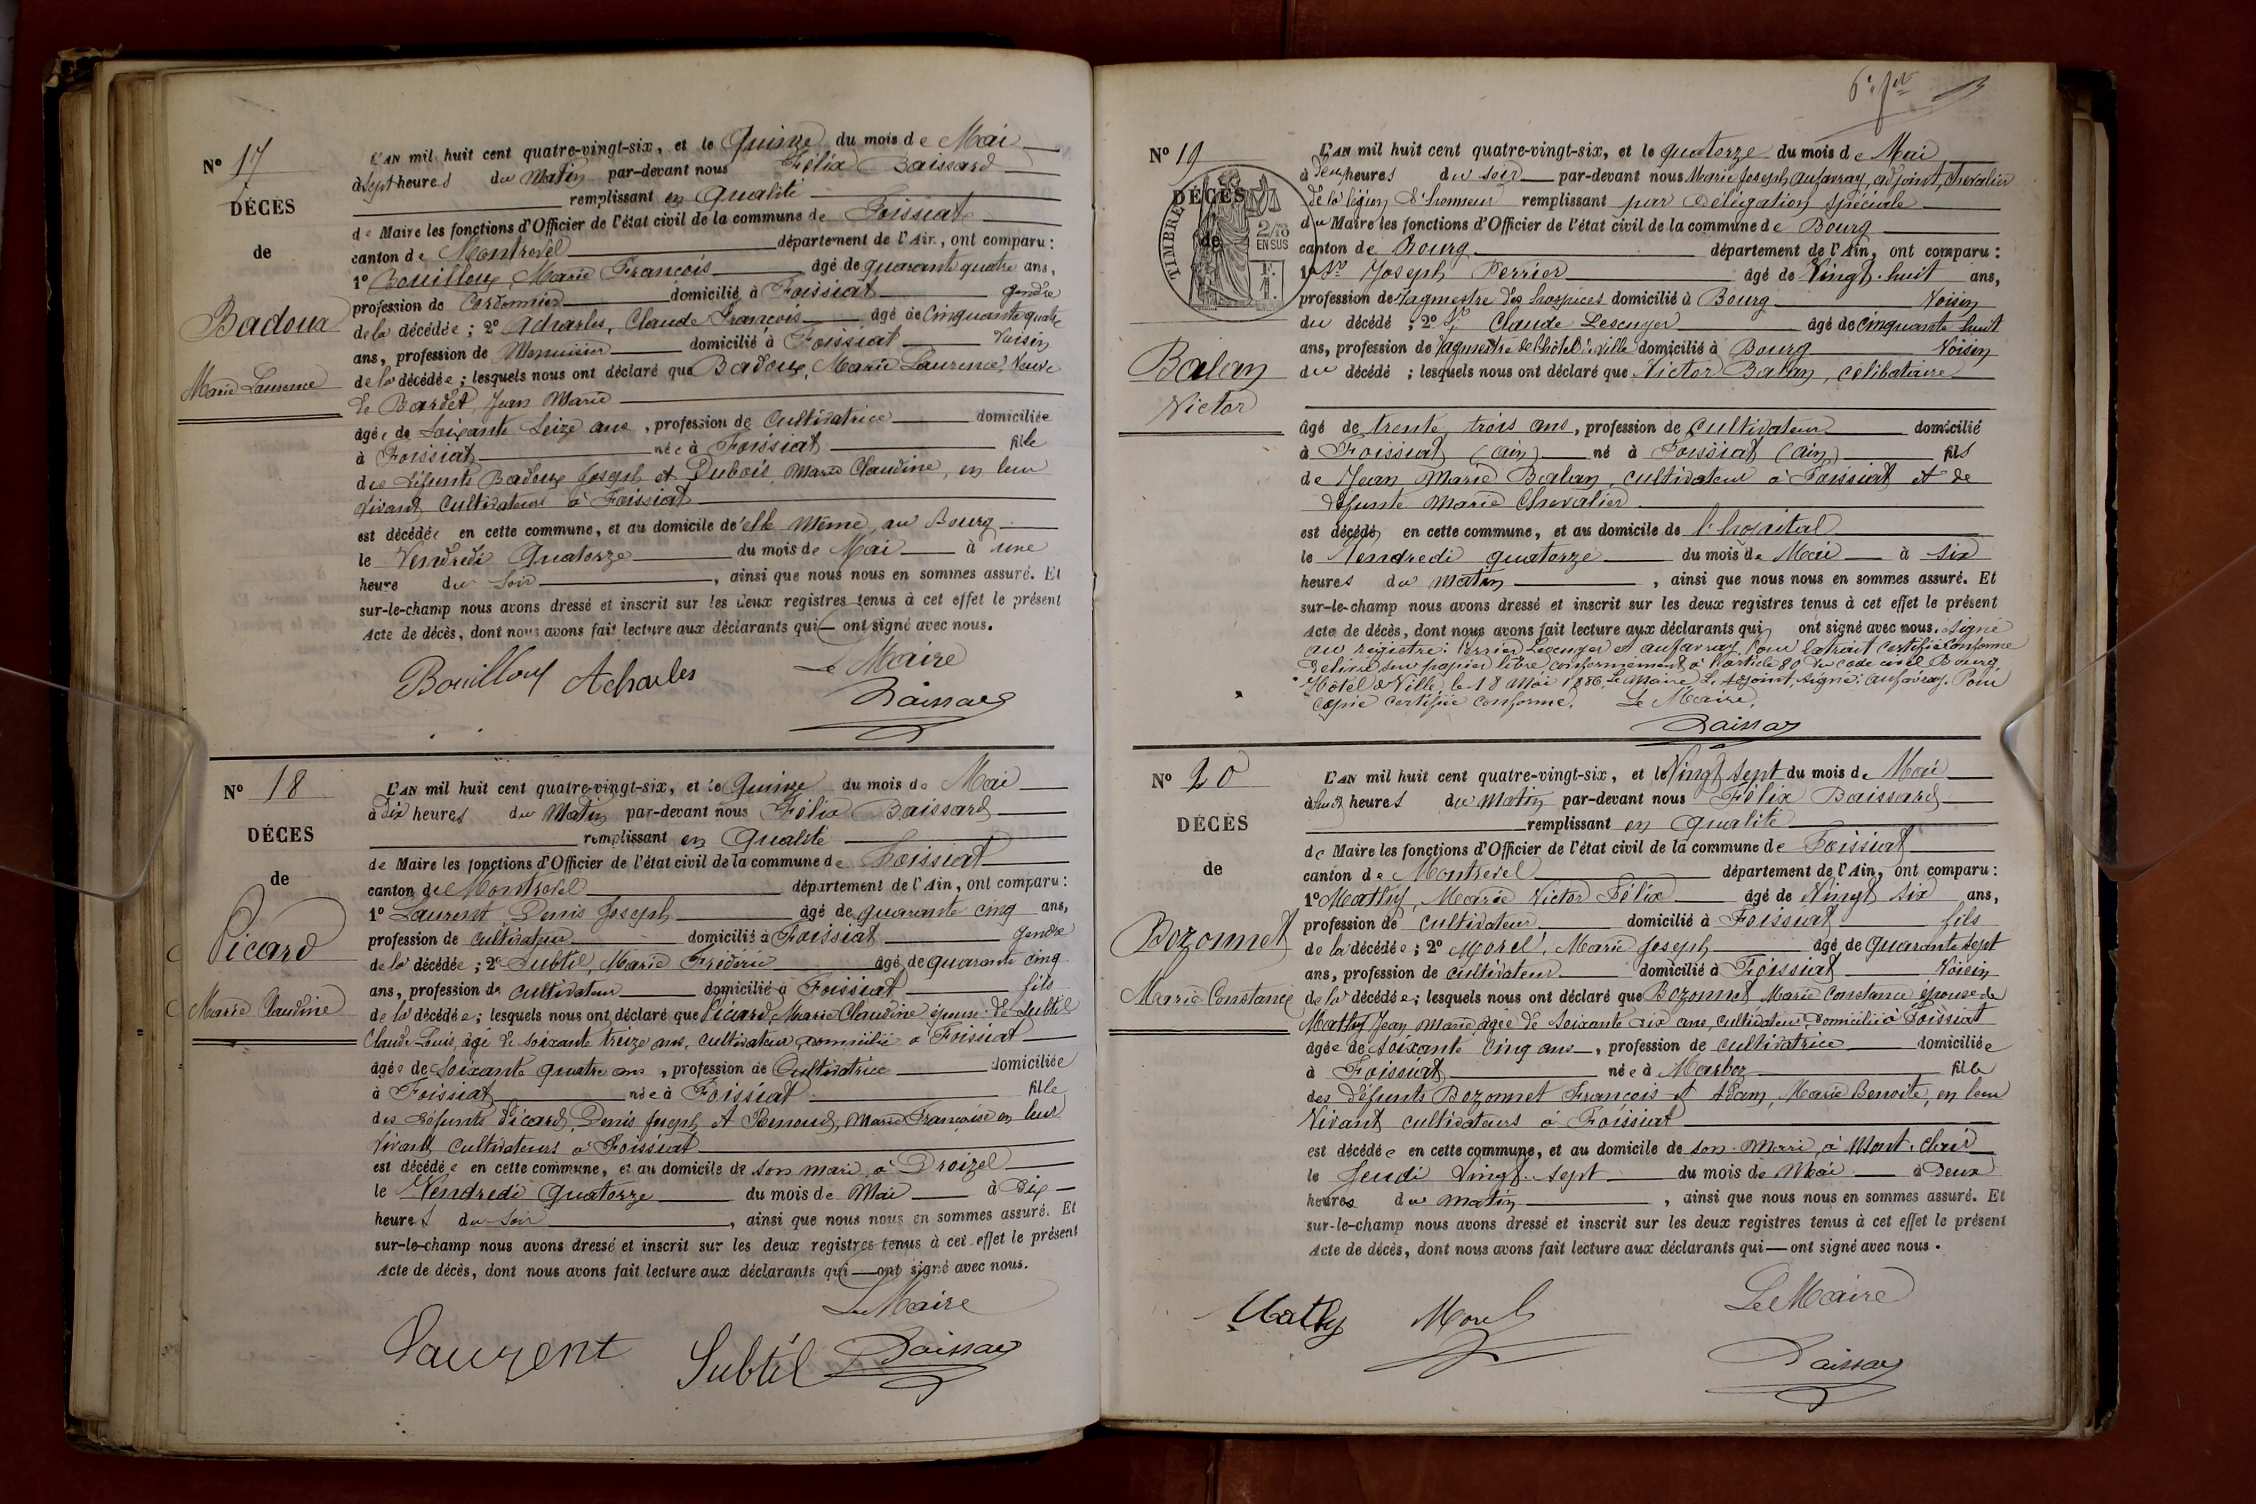 N° 17
DÉCÈS
de
Badoux
Marie Laurence
L'AN mil huit cent quatre-vingt-six, et le Quinze du mois de Mai
à sept heures du Matin par-devant nous Félix Baissard
remplissant en Qualité
de Maire les fonctions d'Officier de l'état civil de la commune de Foissiat
canton de Montrevel département de l'Ain, ont comparu :
1° Bouilloux, Marie François âgé de quarante quatre ans,
profession de Cordonnier domicilié à Foissiat gendre
de la décédée ; 2° Acharles, Claude François âgé de Cinquante quatre
ans, profession de Menuisier domicilié à Foissiat Voisin
de la décédée ; lesquels nous ont déclaré que Badoux, Marie Laurence, Veuve
de Bardet, Jean Marie
âgée de Soixante Seize ans, profession de Cultivatrice domiciliée
à Foissiat née à Foissiat fille
des défunts Badoux Joseph et Dubois, Marie Claudine, en leur
Vivant Cultivateurs à Foissiat
est décédée en cette commune, et au domicile de d'elle même, au Bourg
le Vendredi Quatorze du mois de Mai à une
heure du Soir, ainsi que nous nous en sommes assuré. Et
sur-le-champ nous avons dressé et inscrit sur les deux registres tenus à cet effet le présent
Acte de décès, dont nous avons fait lecture aux déclarants qui — ont signé avec nous.
Bouilloux Acharles Le Maire
Baissard
N° 18
DÉCES
de
Picard
Marie Claudine
L'AN mil huit cent quatre-vingt-six, et le Quinze du mois de Mai
à Dix heures du Matin par-devant nous Félix Baissard
remplissant en Qualité
de Maire les fonctions d'Officier de l'état civil de la commune de Foissiat
canton de Montrevel département de l'Ain, ont comparu :
1° Laurent, Denis Joseph âgé de quarante cinq ans,
profession de cultivateur domicilié à Foissiat Gendre
de la décédée ; 2° Subtil, Marie Fréderic âgé de quarante cinq
ans, profession de cultivateur domicilié à Foissiat fils
de la décédée ; lesquels nous ont déclaré que Picard, Marie Claudine épouse de Subtil
Claude Louis, âgé de soixante treize ans, cultivateur domicilié à Foissiat
âgée de Soixante quatre ans, profession de Cultivatrice domiciliée
à Foissiat née à Foissiat fille
des défunts Picard, Denis Joseph et Renoud, Marie Françoise en leur
Vivant cultivateurs à Foissiat
est décédée en cette commune, et au domicile de son mari, à Droizel
le Vendredi Quatorze du mois de Mai à Dix
heures du Soir, ainsi que nous nous en sommes assuré. Et
sur-le-champ nous avons dressé et inscrit sur les deux registres tenus à cet effet le présent
Acte de décès, dont nous avons fait lecture aux déclarants qui — ont signé avec nous.
Le Maire
Laurent Subtil Baissard
N° 19
DÉCÈS
de
TIMBRE
2/10
EN SUS
Balan
Victor
L'AN mil huit cent quatre-vingt-six, et le quatorze du mois de Mai
à deux heures du soir par-devant nous Marie Joseph Aufavray, adjoint, chevalier
de la légion d'honneur remplissant par délégation spéciale
du Maire les fonctions d'Officier de l'état civil de la commune de Bourg
canton de Bourg département de l'Ain, ont comparu :
1° Sr Joseph Perrier âgé de Vingt-huit ans,
profession de Vagmestre des hospices domicilié à Bourg Voisin
du décédé ; 2° Sr Claude Lescuyer âgé de cinquante huit
ans, profession de Vagmestre de l'hôtel de Ville domicilié à Bourg Voisin
du décédé ; lesquels nous ont déclaré que Victor Balan, célibataire
âgé de trente trois ans, profession de cultivateur domicilié
à Foissiat (Ain) né à Foissiat (Ain) fils
de Jean Marie Balan, cultivateur à Foissiat et de
défunte Marie Chevalier
est décédé en cette commune, et au domicile de l'hôpital
le Vendredi quatorze du mois de Mai à six
heures du matin, ainsi que nous nous en sommes assuré. Et
sur-le-champ nous avons dressé et inscrit sur les deux registres tenus à cet effet le présent
Acte de décès, dont nous avons fait lecture aux déclarants qui ont signé avec nous. Signé
au registre : Perrier Lescuyer et Aufavray. Pour extrait certifié conforme
délivré sur papier libre conformément à l'article 80 du code civil Bourg,
Hôtel de Ville, le 18 Mai 1886. Le Maire L'Adjoint, signé : Aufavray. Pour
copie certifiée conforme. Le Maire,
Baissard
N° 20
DÉCÈS
de
Bozonnet
Marie Constance
L'AN mil huit cent quatre-vingt-six, et le Vingt sept du mois de Mai
à huit heures du Matin par-devant nous Félix Baissard
remplissant en Qualité
de Maire les fonctions d'Officier de l'état civil de la commune de Foissiat
canton de Montrevel département de l'Ain, ont comparu :
1° Mathy, Marie Victor Félix âgé de Vingt six ans,
profession de cultivateur domicilié à Foissiat fils
de la décédée ; 2° Morel, Marie Joseph âgé de quarante sept
ans, profession de cultivateur domicilié à Foissiat Voisin
de la décédée ; lesquels nous ont déclaré que Bozonnet Marie Constance épouse de
Mathy Jean Marie, âgé de soixante dix ans, cultivateur, domicilié à Foissiat
âgée de Soixante cinq ans, profession de cultivatrice domiciliée
à Foissiat née à Marboz fille
des défunts Bozonnet François et Adam, Marie Benoite, en leur
Vivant cultivateurs à Foissiat
est décédée en cette commune, et au domicile de son Mari, à Mont-clair
le Jeudi Vingt-sept du mois de Mai à Deux
heures du matin, ainsi que nous nous en sommes assuré. Et
sur-le-champ nous avons dressé et inscrit sur les deux registres tenus à cet effet le présent
Acte de décès, dont nous avons fait lecture aux déclarants qui — ont signé avec nous.
Mathy Morel Le Maire
Baissard